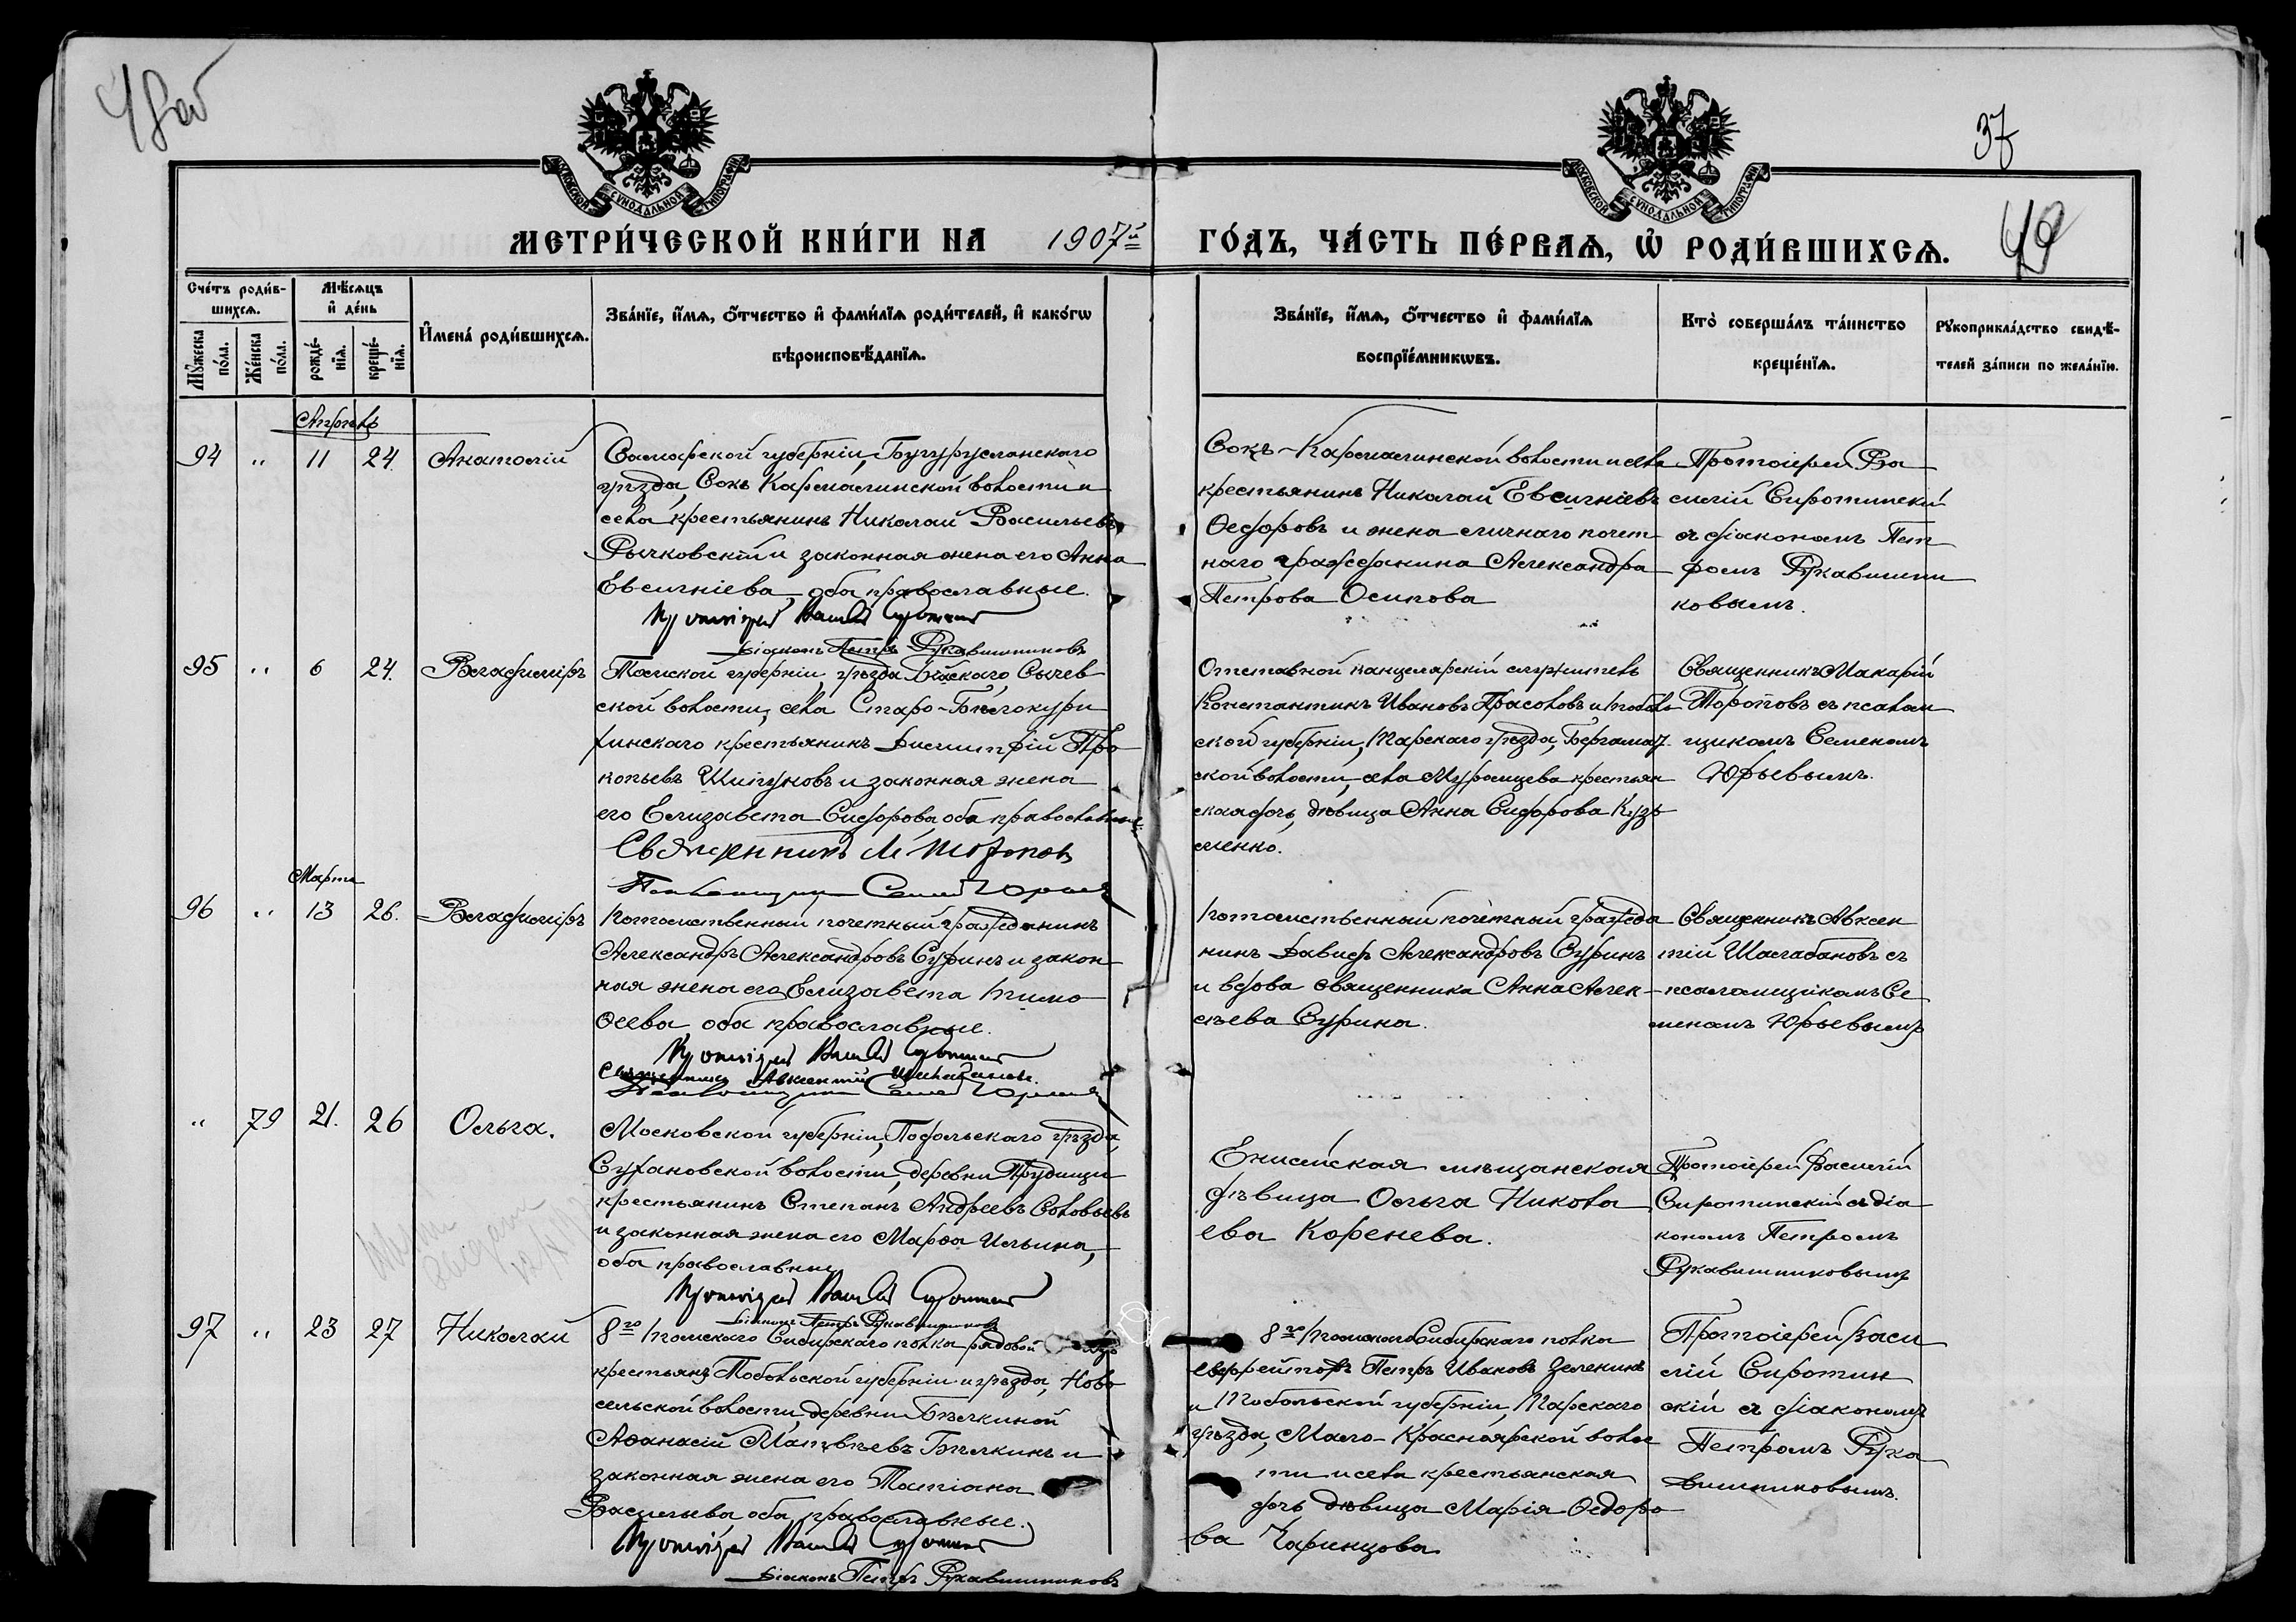 48об
37
49
МОСКОВСКОЙ СѴНОДАЛЬНОЙ ТИПОГРАФІИ
МОСКОВСКОЙ СѴНОДАЛЬНОЙ ТИПОГРАФІИ
МЕТРИ́ЧЕСКОЙ КНИ́ГИ НА 1907й ГО́ДЪ, ЧА́СТЬ ПЕ́РВАѦ, Ѽ РОДИ́ВШИХСѦ.
Счéтъ роди́в-
шихсѧ.
Мꙋ́жеска пóла.
Жéнска пóла.
Мѣ́сѧцъ
и҆ дéнь
рождé-
нїѧ.
крещé-
нїѧ.
И҆менá роди́вшихсѧ.
Звáнїе, и҆́мѧ, ѻ҆́тчество и҆ фами́лїѧ роди́телей, и҆ какóгѡ
вѣроисповѣ́данїѧ.
Звáнїе, и҆́мѧ, ѻ҆́тчество и҆ фами́лїѧ
воспрїéмникѡвъ.
Ктò совершáлъ тáинство
крещéнїѧ.
Рꙋкоприклáдство свидѣ́-
телей зáписи по желáнїю.
Апрѣль
94 " 11 24. Анатолій
Самарской губерніи, Бугурусланскаго
уѣзда, Сокъ Кармалинской волости и
села крестьянинъ Николай Васильевъ
Рычковскій и законная жена его Анна
Евсигніева, оба православные.
Протоіерей Василій Сиротинскій
Діаконъ Петръ Рукавишниковъ
Сокъ-Кармалинской волости и села
крестьянинъ Николай Евсигніевъ
Ѳедоровъ и жена личнаго почет
наго гражданина Александра
Петрова Осипова
Протоіерей Ва
силій Сиротинскій
съ діакономъ Пет
ромъ Рукавишни
ковымъ.
95 " 6 24. Владиміръ
Томской губерніи, уѣзда Бійскаго, Сычев
ской волости, села Старо-Бѣлокури
хинскаго крестьянинъ Димитрій Про
копьевъ Шипуновъ и законная жена
его Елизавета Сидорова, оба православные.
Священникъ М. Торопов
Псаломщикъ Семен Юрьев
Отставной канцелярскій служитель
Константинъ Ивановъ Прасоловъ и Тоболь
ской губерніи, Тарскаго уѣзда, Бергамац
ской волости, села Муромцева крестьян
ская дочь, дѣвица Анна Сидорова Кузь
менко.
Священникъ Макарій
Тороповъ съ псалом
щикомъ Семеномъ
Юрьевымъ.
Марта
96 " 13 26. Владиміръ
Потомственный почетный гражданинъ
Александръ Александровъ Суринъ и закон
ная жена его Елизавета Тимо
ѳеева, оба православные.
Протоіерей Василій Сиротинскій
Священникъ Авксентій Шалабановъ.
Псаломщикъ Семен Юрьев
Потомственный почетный гражда
нинъ Давидъ Александровъ Суринъ
и вдова священника Анна Алек
сѣева Сурина.
Священникъ Авксен
тій Шалабановъ съ
псаломщикомъ Се
меномъ Юрьевымъ
" 79 21. 26 Ольга.
Московской губерніи, Подольскаго уѣзда,
Сухановской волости, деревни Прудищи
крестьянинъ Степанъ Андреевъ Соловьевъ
и законная жена его Марѳа Ильина,
оба православные
Протоіерей Василій Сиротинскій
Діаконъ Петръ Рукавишниковъ
Енисейская мѣщанская
дѣвица Ольга Никола
ева Коренева.
Протоіерей Василій
Сиротинскій съ діа
кономъ Петромъ
Рукавишниковымъ
97 " 23 27 Николай
8го Томскаго Сибирскаго полка рядовой изъ
крестьянъ Тобольской губерніи и уѣзда, Ново
сельской волости, деревни Бѣлкиной
Аѳанасій Матвѣевъ Бѣлкинъ и
законная жена его Татіана
Васильева, оба православные.
Протоіерей Василій Сиротинскій
Діаконъ Петръ Рукавишниковъ
8го Томскаго Сибирскаго полка
ефрейторъ Петръ Ивановъ Зеленинъ
и Тобольской губерніи, Тарскаго
уѣзда, Мало-Красноярской волос
ти и села крестьянская
дочь дѣвица Марія Ѳедоро
ва Чаринцова
Протоіерей Васи
лій Сиротин
скій съ діакономъ
Петромъ Рука
вишниковымъ.